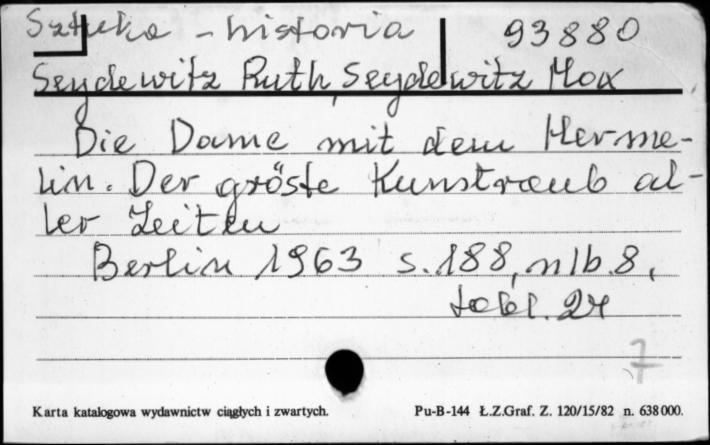 Sztuka - historia 93880
Seydewitz Ruth, Seydewitz Max
Die Dame mit dem Herme-
lin. Der gröste Kunstraub al-
ler Zeiten
Berlin 1963 s. 188, nlb. 8,
tabl. 24
7
Karta katalogowa wydawnictw ciągłych i zwartych. Pu-B-144 Ł.Z.Graf. Z. 120/15/82 n. 638000.